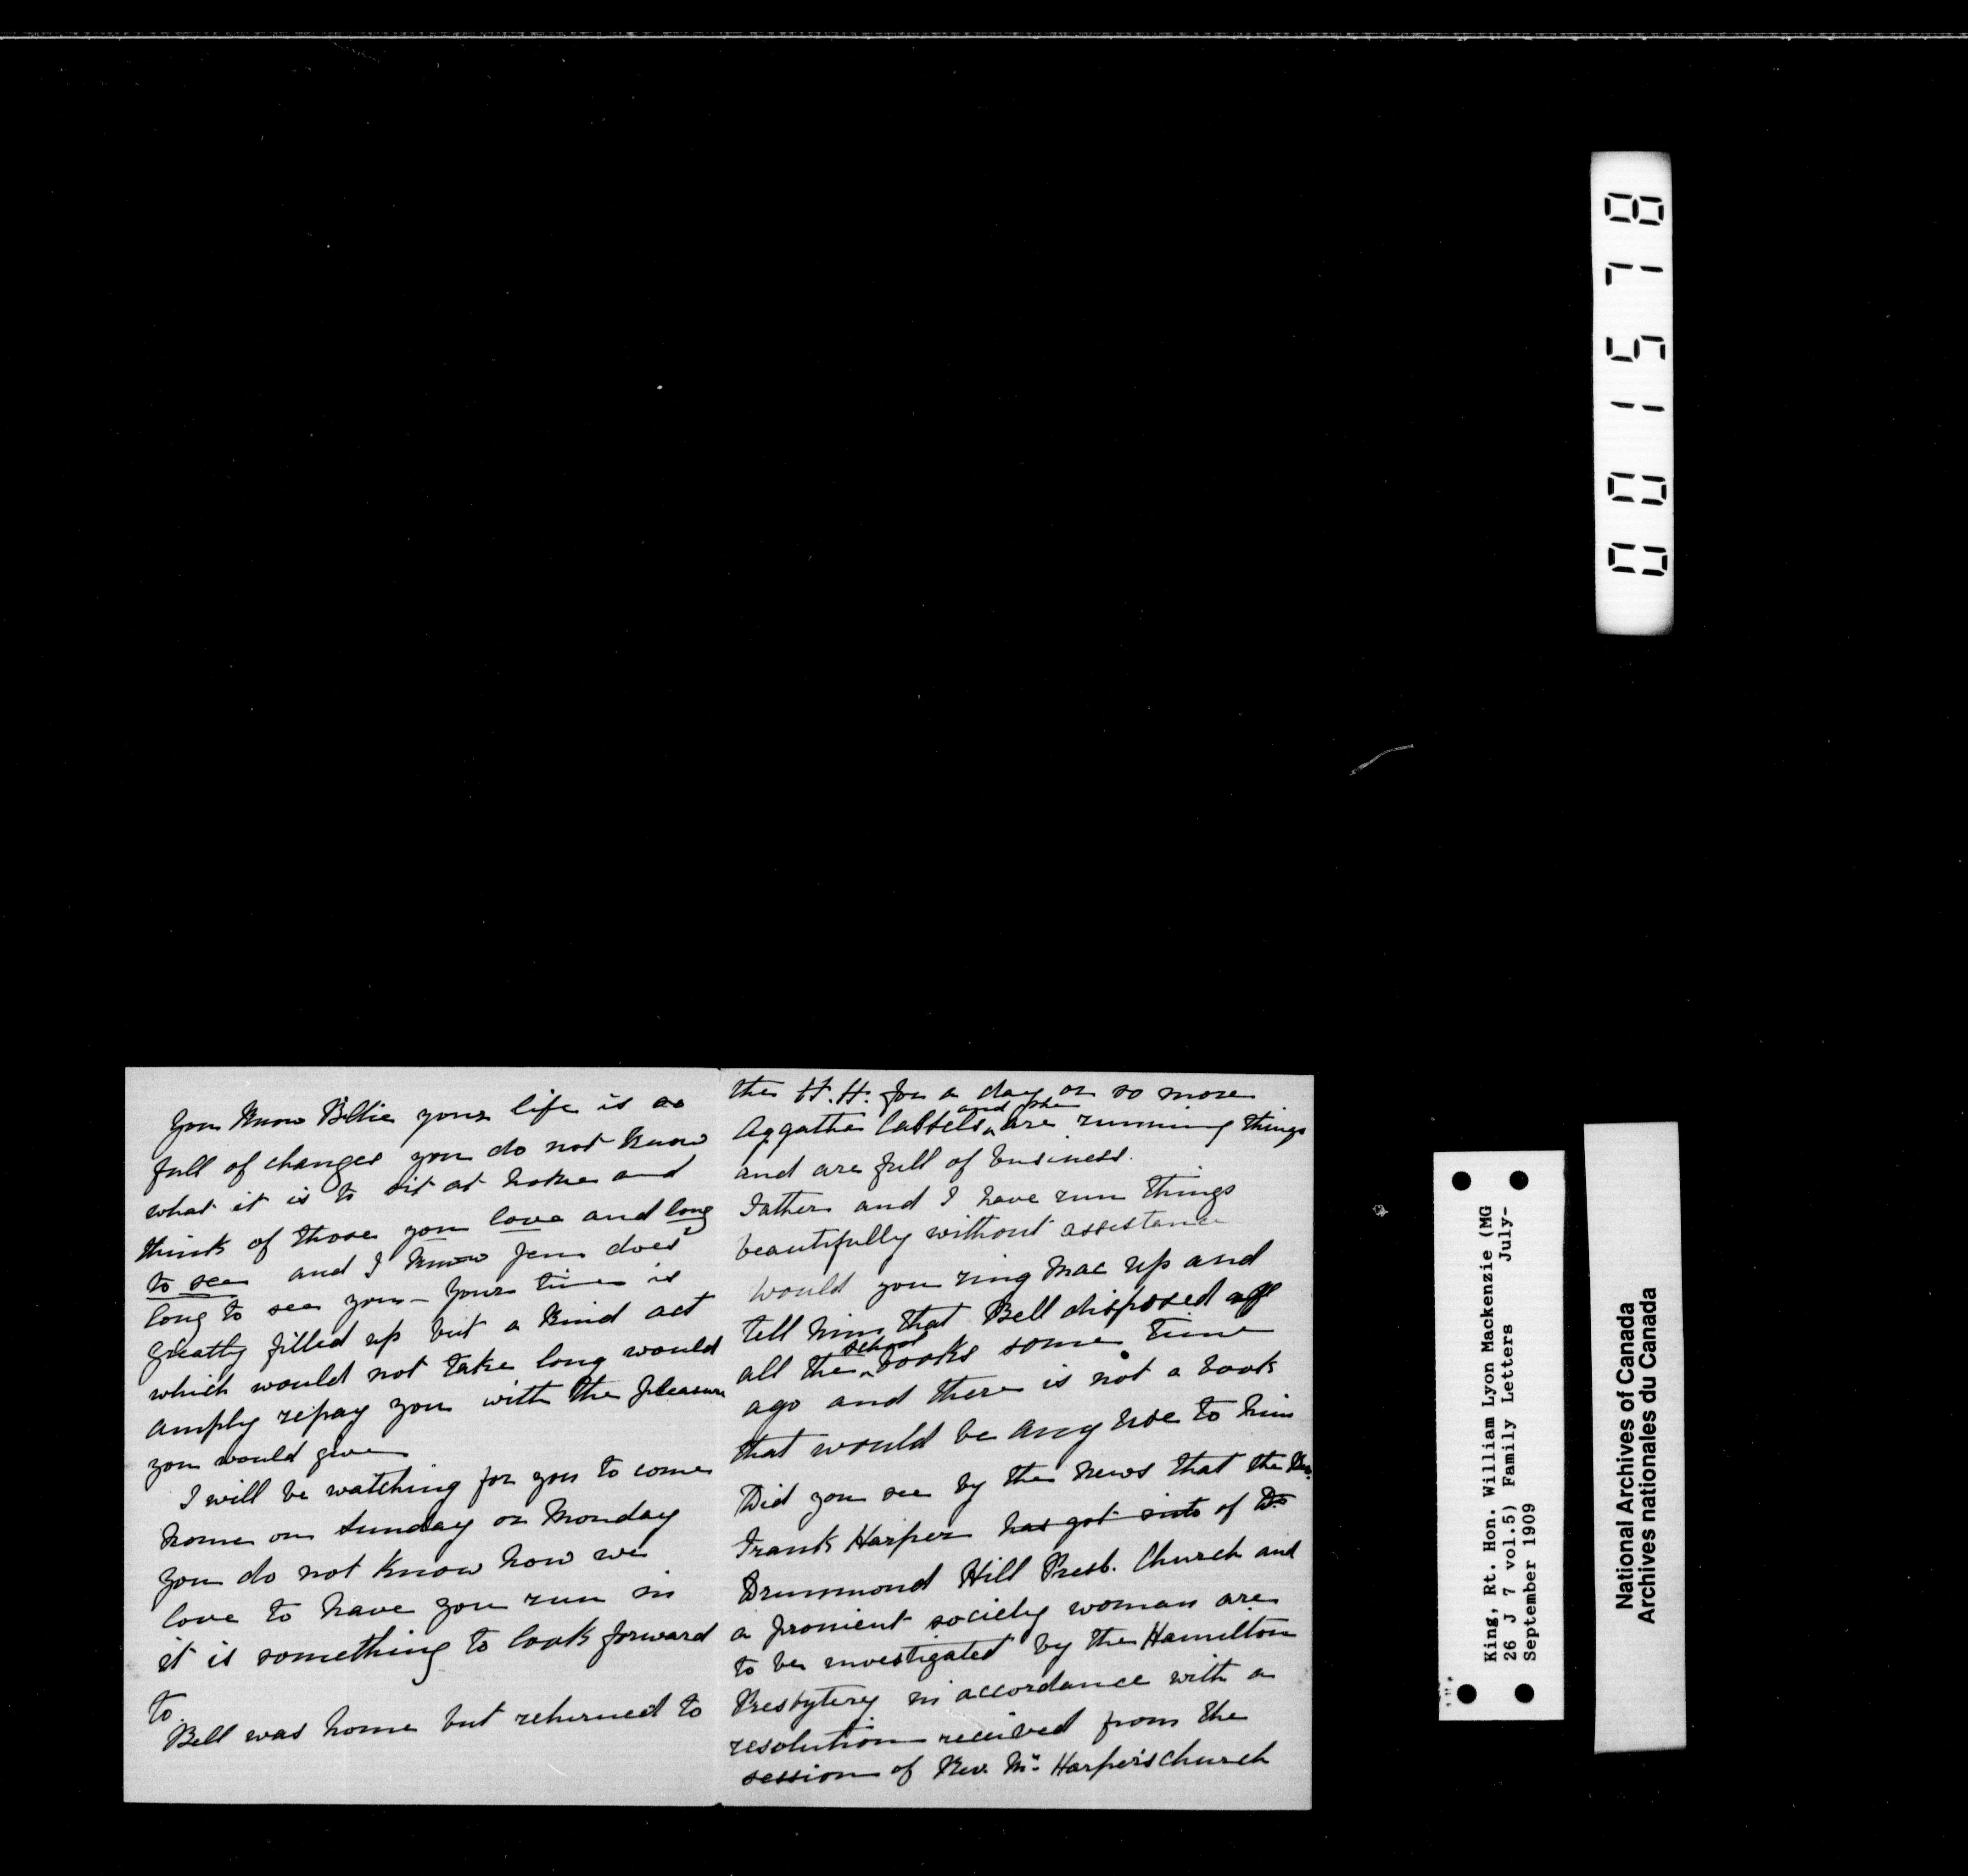 You know Billie your life is so
full of changes you do not know
what it is to sit at home and
think of those you love and long
to see and I know Jen does
long to see you - Your time is
greatly filled up but a kind act
which would not take long would
amply repay you with the pleasure
you would give
I will be watching for you to come
home on Sunday or Monday
you do not know how we
love to have you run in
it is something to look forward
to.
Bell was home but returned to
the H.H. for a day or so more
Aggathe and she are running things
and are full of business.
Father and I have run things
beautifully without assistance
Would you ring Mac up and
tell him that Bell disposed off
all the school books some time
ago and there is not a book
that would be any use to him
Did you see by the News that the Rev.
Frank Harper has got into of Dr
Drummond Hill Presb. Church and
a pronient society woman are
to be investigated by the Hamilton
Presbytery in accordance with a
resolution received from the
session of Rev. Mr. Harper's church
King, Rt. Hon. William Lyon Mackenzie (MG
26 J 7 vol.5) Family Letters July-
September 1909
National Archives of Canada
Archives nationales du Canada